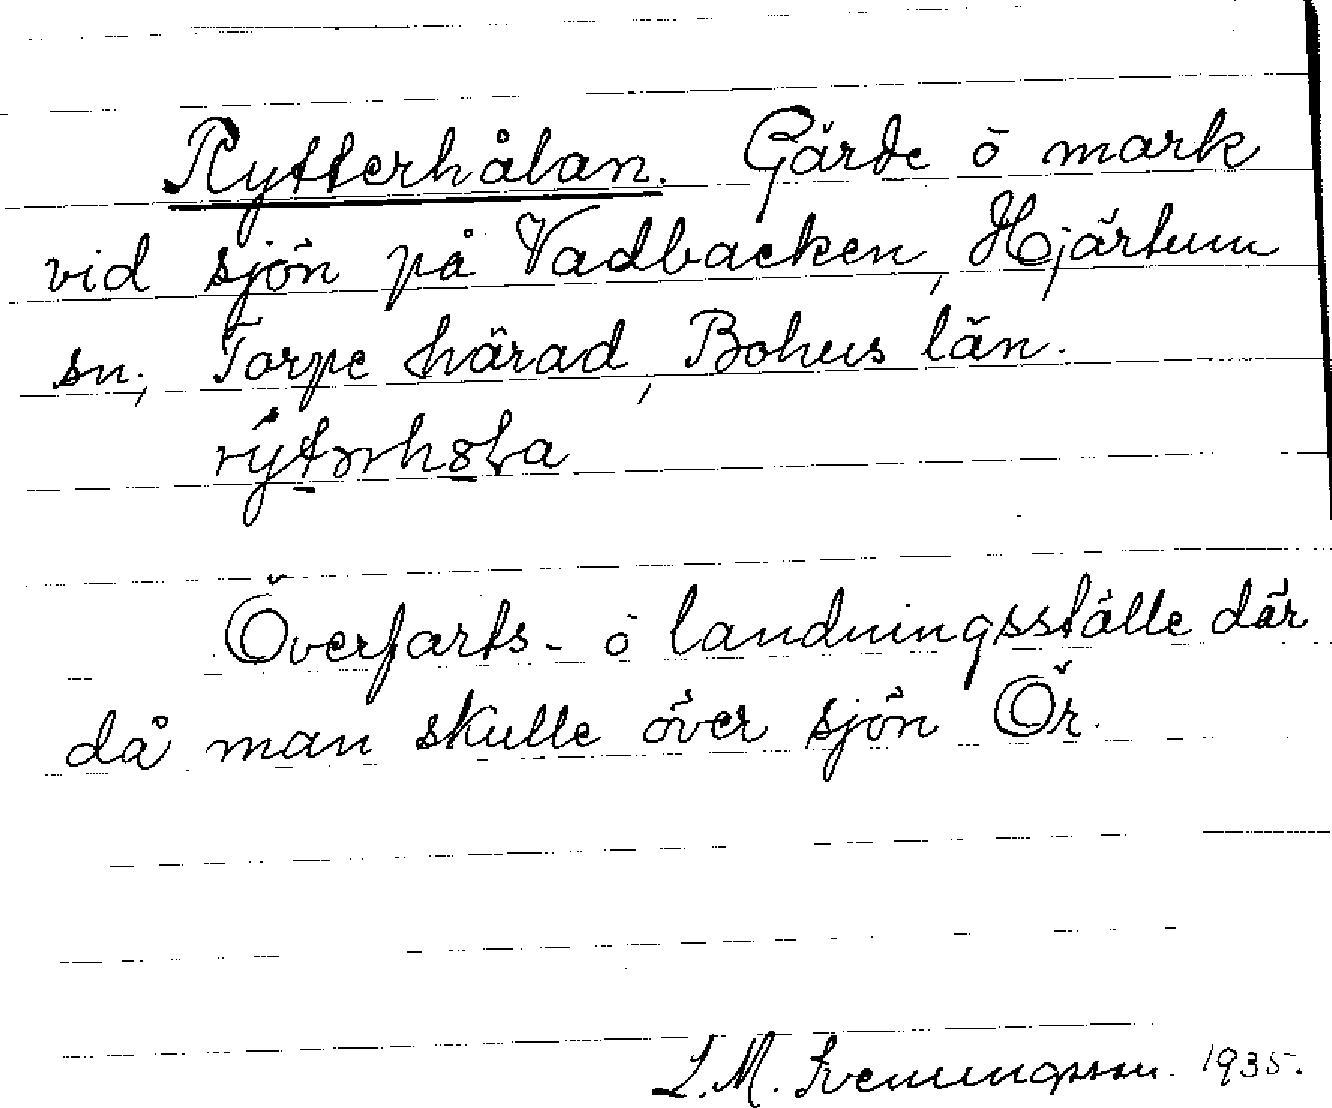 Rytterhålan. Gärde ö mark
vid sjön på Vadbacken, Hjärtum
sn., Torpe härad, Bohus län.
Överfarts- ö landningsställe där
då man skulle över sjön Ör.
L. M. Svenningsson. 1935.